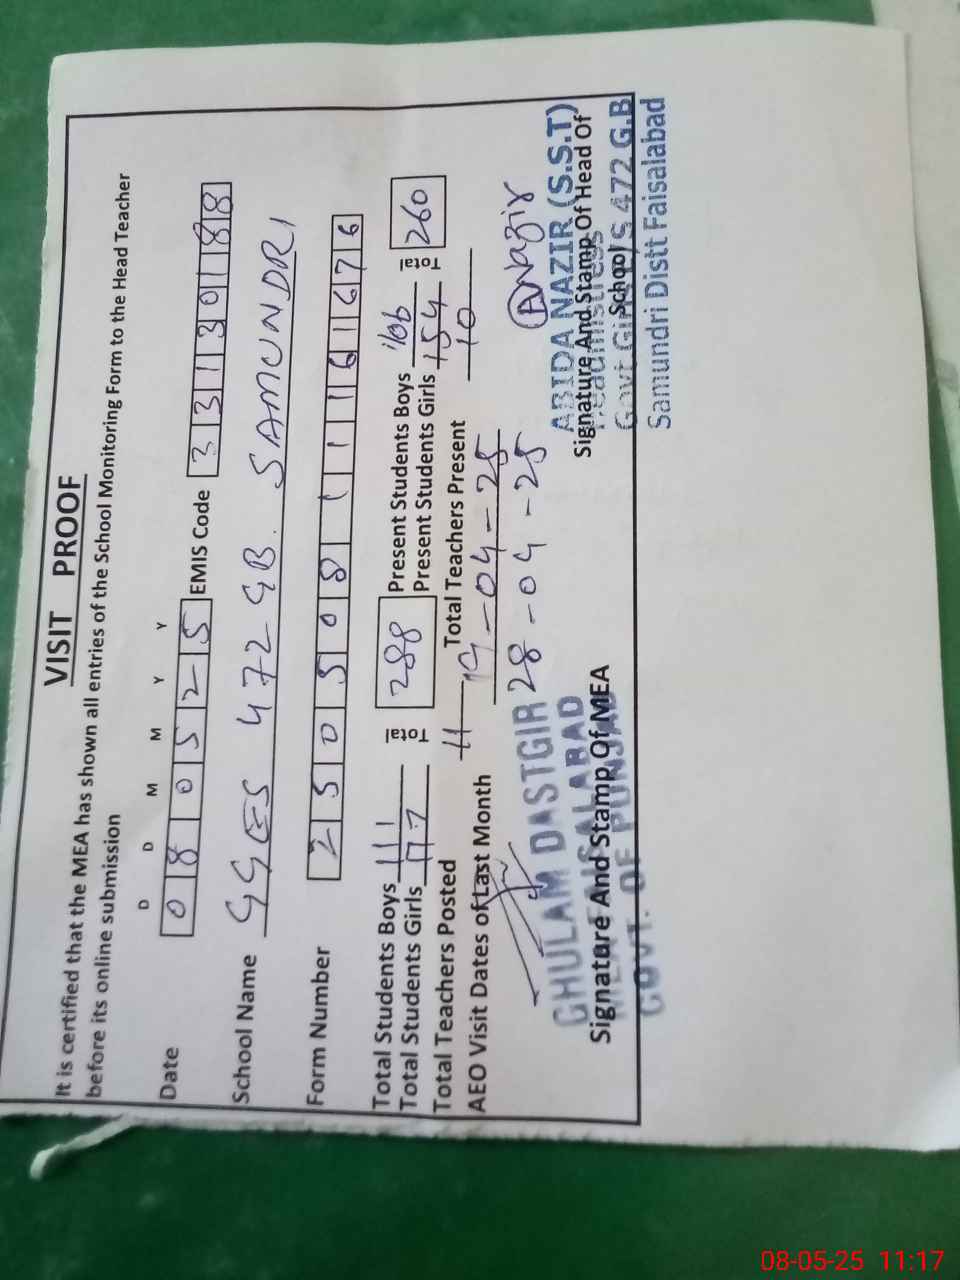 VISIT PROOF
It is certified that the MEA has shown all entries of the School Monitoring Form to the Head Teacher
before its online submission
D D M M Y Y
Date 080525 EMIS Code 33130188
School Name GGES 472 GB. SAMUNDRI
Form Number 25050811161676
Total Students Boys 111 Total 288 Present Students Boys 106 Total 260
Total Students Girls 177 Present Students Girls 154
Total Teachers Posted 11 Total Teachers Present 10
AEO Visit Dates of Last Month 19-04-25
28-04-25
ANazir
GHULAM DASTGIR
MEA FAISALABAD
GOVT. OF PUNJAB
Signature And Stamp Of MEA
ABIDA NAZIR (S.S.T)
Headmistress
Govt Girls E/S 472 G.B
Samundri Distt Faisalabad
Signature And Stamp Of Head Of
School
08-05-25 11:17